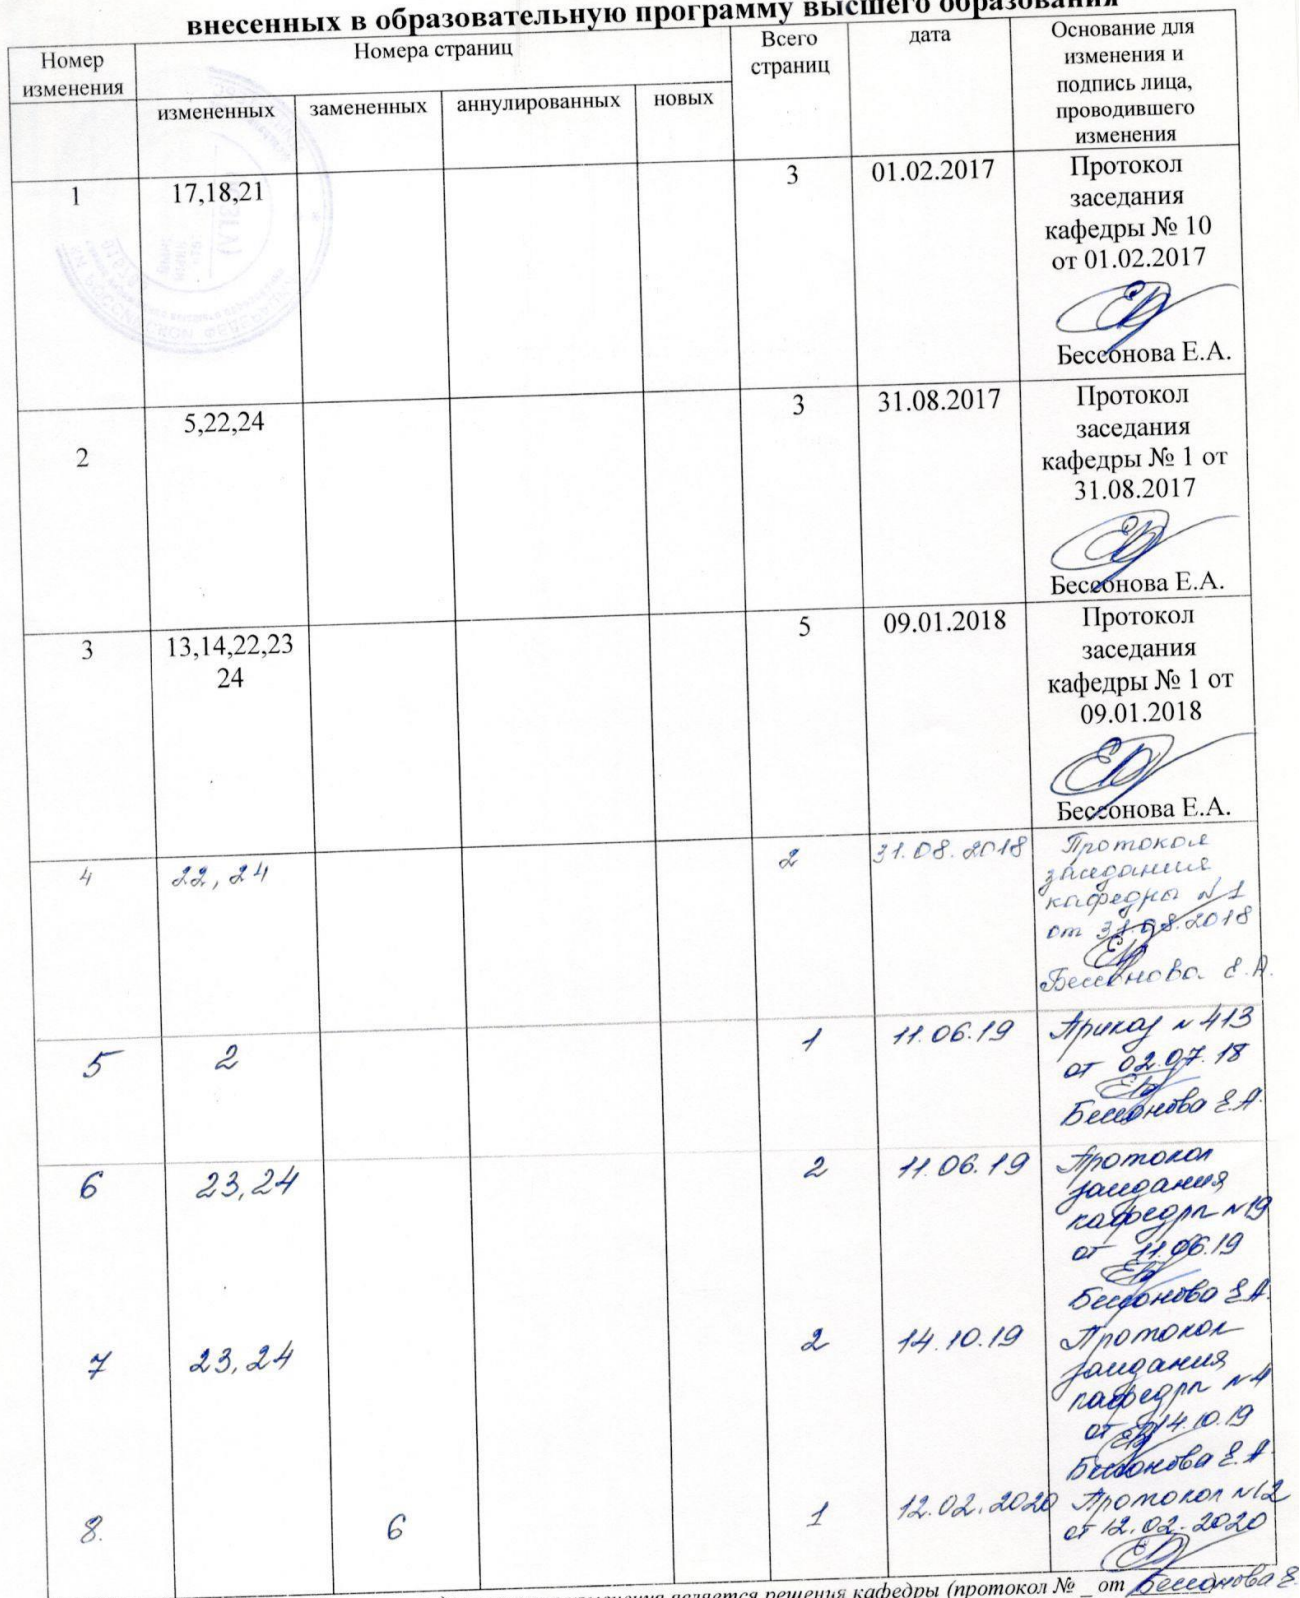 внесенных в образовательную программу высшего образования
Номер изменения Номера страниц Всего страниц дата Основание для изменения и подпись лица, проводившего изменения
измененных замененных аннулированных новых
1 17,18,21 3 01.02.2017 Протокол
заседания
кафедры № 10
от 01.02.2017
Бессонова Е.А.
2 5,22,24 3 31.08.2017 Протокол
заседания
кафедры № 1 от
31.08.2017
Бессонова Е.А.
3 13,14,22,23 5 09.01.2018 Протокол
24 заседания
кафедры № 1 от
09.01.2018
Бессонова Е.А.
4 22, 24 2 31.08.2018 Протокол
заседания
кафедры №1
от 31.08.2018
Бессонова Е.А.
5 2 1 11.06.19 Приказ № 413
от 02.07.18
Бессонова Е.А.
6 23,24 2 11.06.19 Протокол
заседания
кафедры №19
от 11.06.19
Бессонова Е.А.
7 23,24 2 14.10.19 Протокол
заседания
кафедры №4
от 14.10.19
Бессонова Е.А.
8. 6 1 12.02.2020 Протокол №12
от 12.02.2020
является решения кафедры (протокол № _ от Бессонова Е.